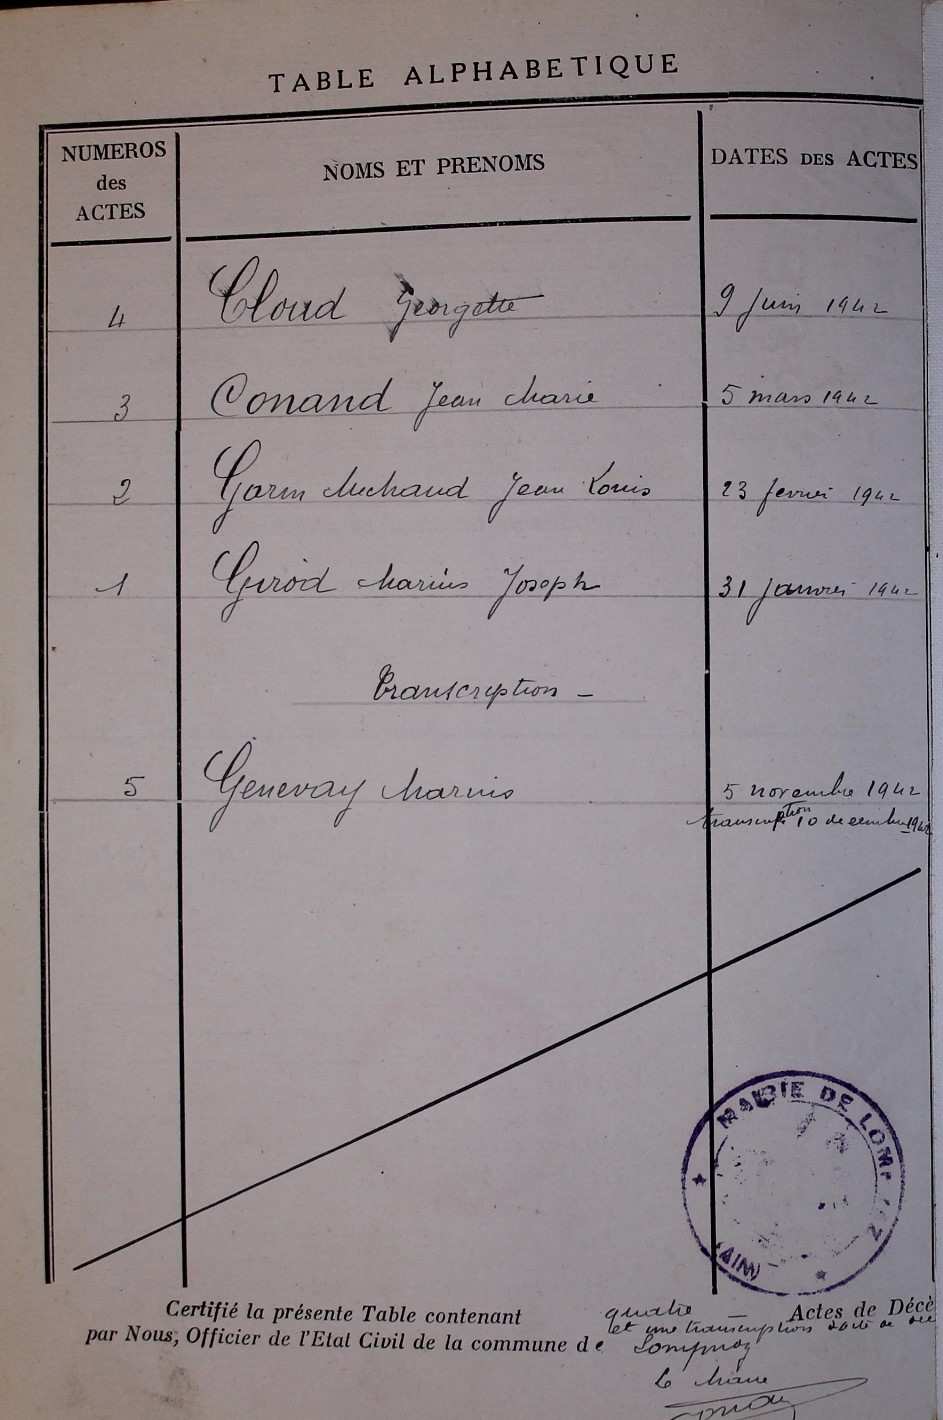 TABLE ALPHABETIQUE
NUMEROS des ACTES
NOMS ET PRENOMS
DATES DES ACTES
4 Cloud Georgette 9 Juin 1942
3 Conand Jean Marie 5 mars 1942
2 Garin Michaud Jean Louis 23 fevrier 1942
1 Girod Marius Joseph 31 Janvier 1942
Transcription -
5 Genevay Marius 5 novembre 1942
transcription 10 decembre 1942
MAIRIE DE LOMP
(AIN)
Certifié la présente Table contenant quatre - Actes de Décè
et une transcription
par Nous, Officier de l'Etat Civil de la commune de Lompnaz
Le Maire